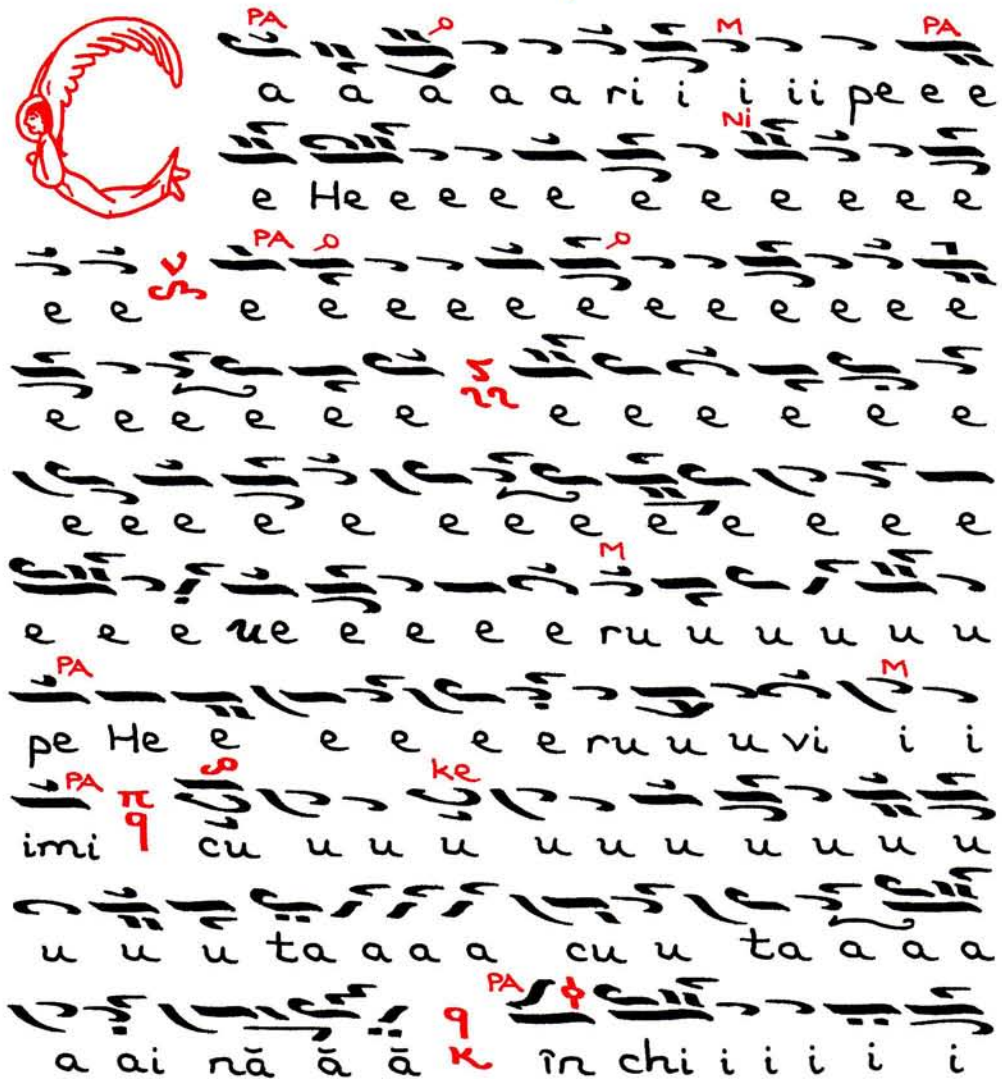 PA M PA
C a a a a a ri i i ii pe e e
Ni
e He e e e e e e e e e e
PA
e e e e e e e e e e e e e e e
e e e e e e e e e e e e
e e e e e e e e e e e e e
M
e e e ue e e e e ru u u u u u
PA M
pe He e e e e e ru u u vi i i
PA π q ke
imi cu u u u u u u u u u
u u u ta a a a cu u ta a a a
q κ PA
a ai nă ă ă în chi i i i i i